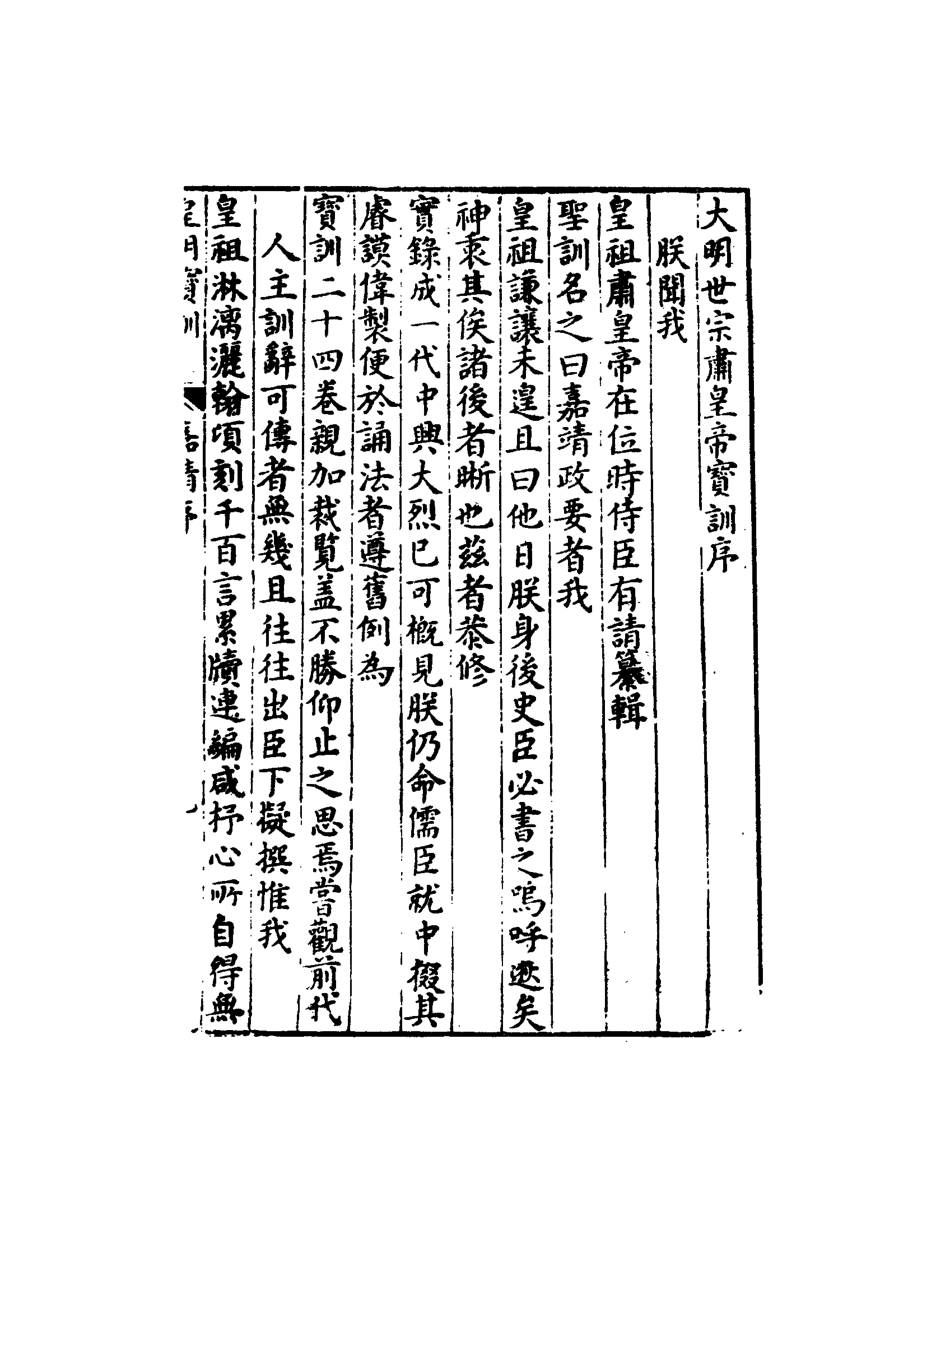 大明世宗肅皇帝寶訓序
朕聞我
皇祖肅皇帝在位時侍臣有請纂輯
聖訓名之曰嘉靖政要者我
皇祖謙讓未遑且曰他日朕身後史臣必書之嗚呼遜矣
神衷其俟諸後者晰也茲者恭修
實錄成一代中興大烈已可概見朕仍命儒臣就中掇其
睿謨偉製便於誦法者遵舊例為
寶訓二十四卷親加裁覽盖不勝仰止之思焉嘗觀前代
人主訓辭可傳者無幾且往往出臣下擬撰惟我
皇祖淋漓灑翰頃刻千百言累牘連編咸抒心所自得無
皇明寶訓 嘉靖序